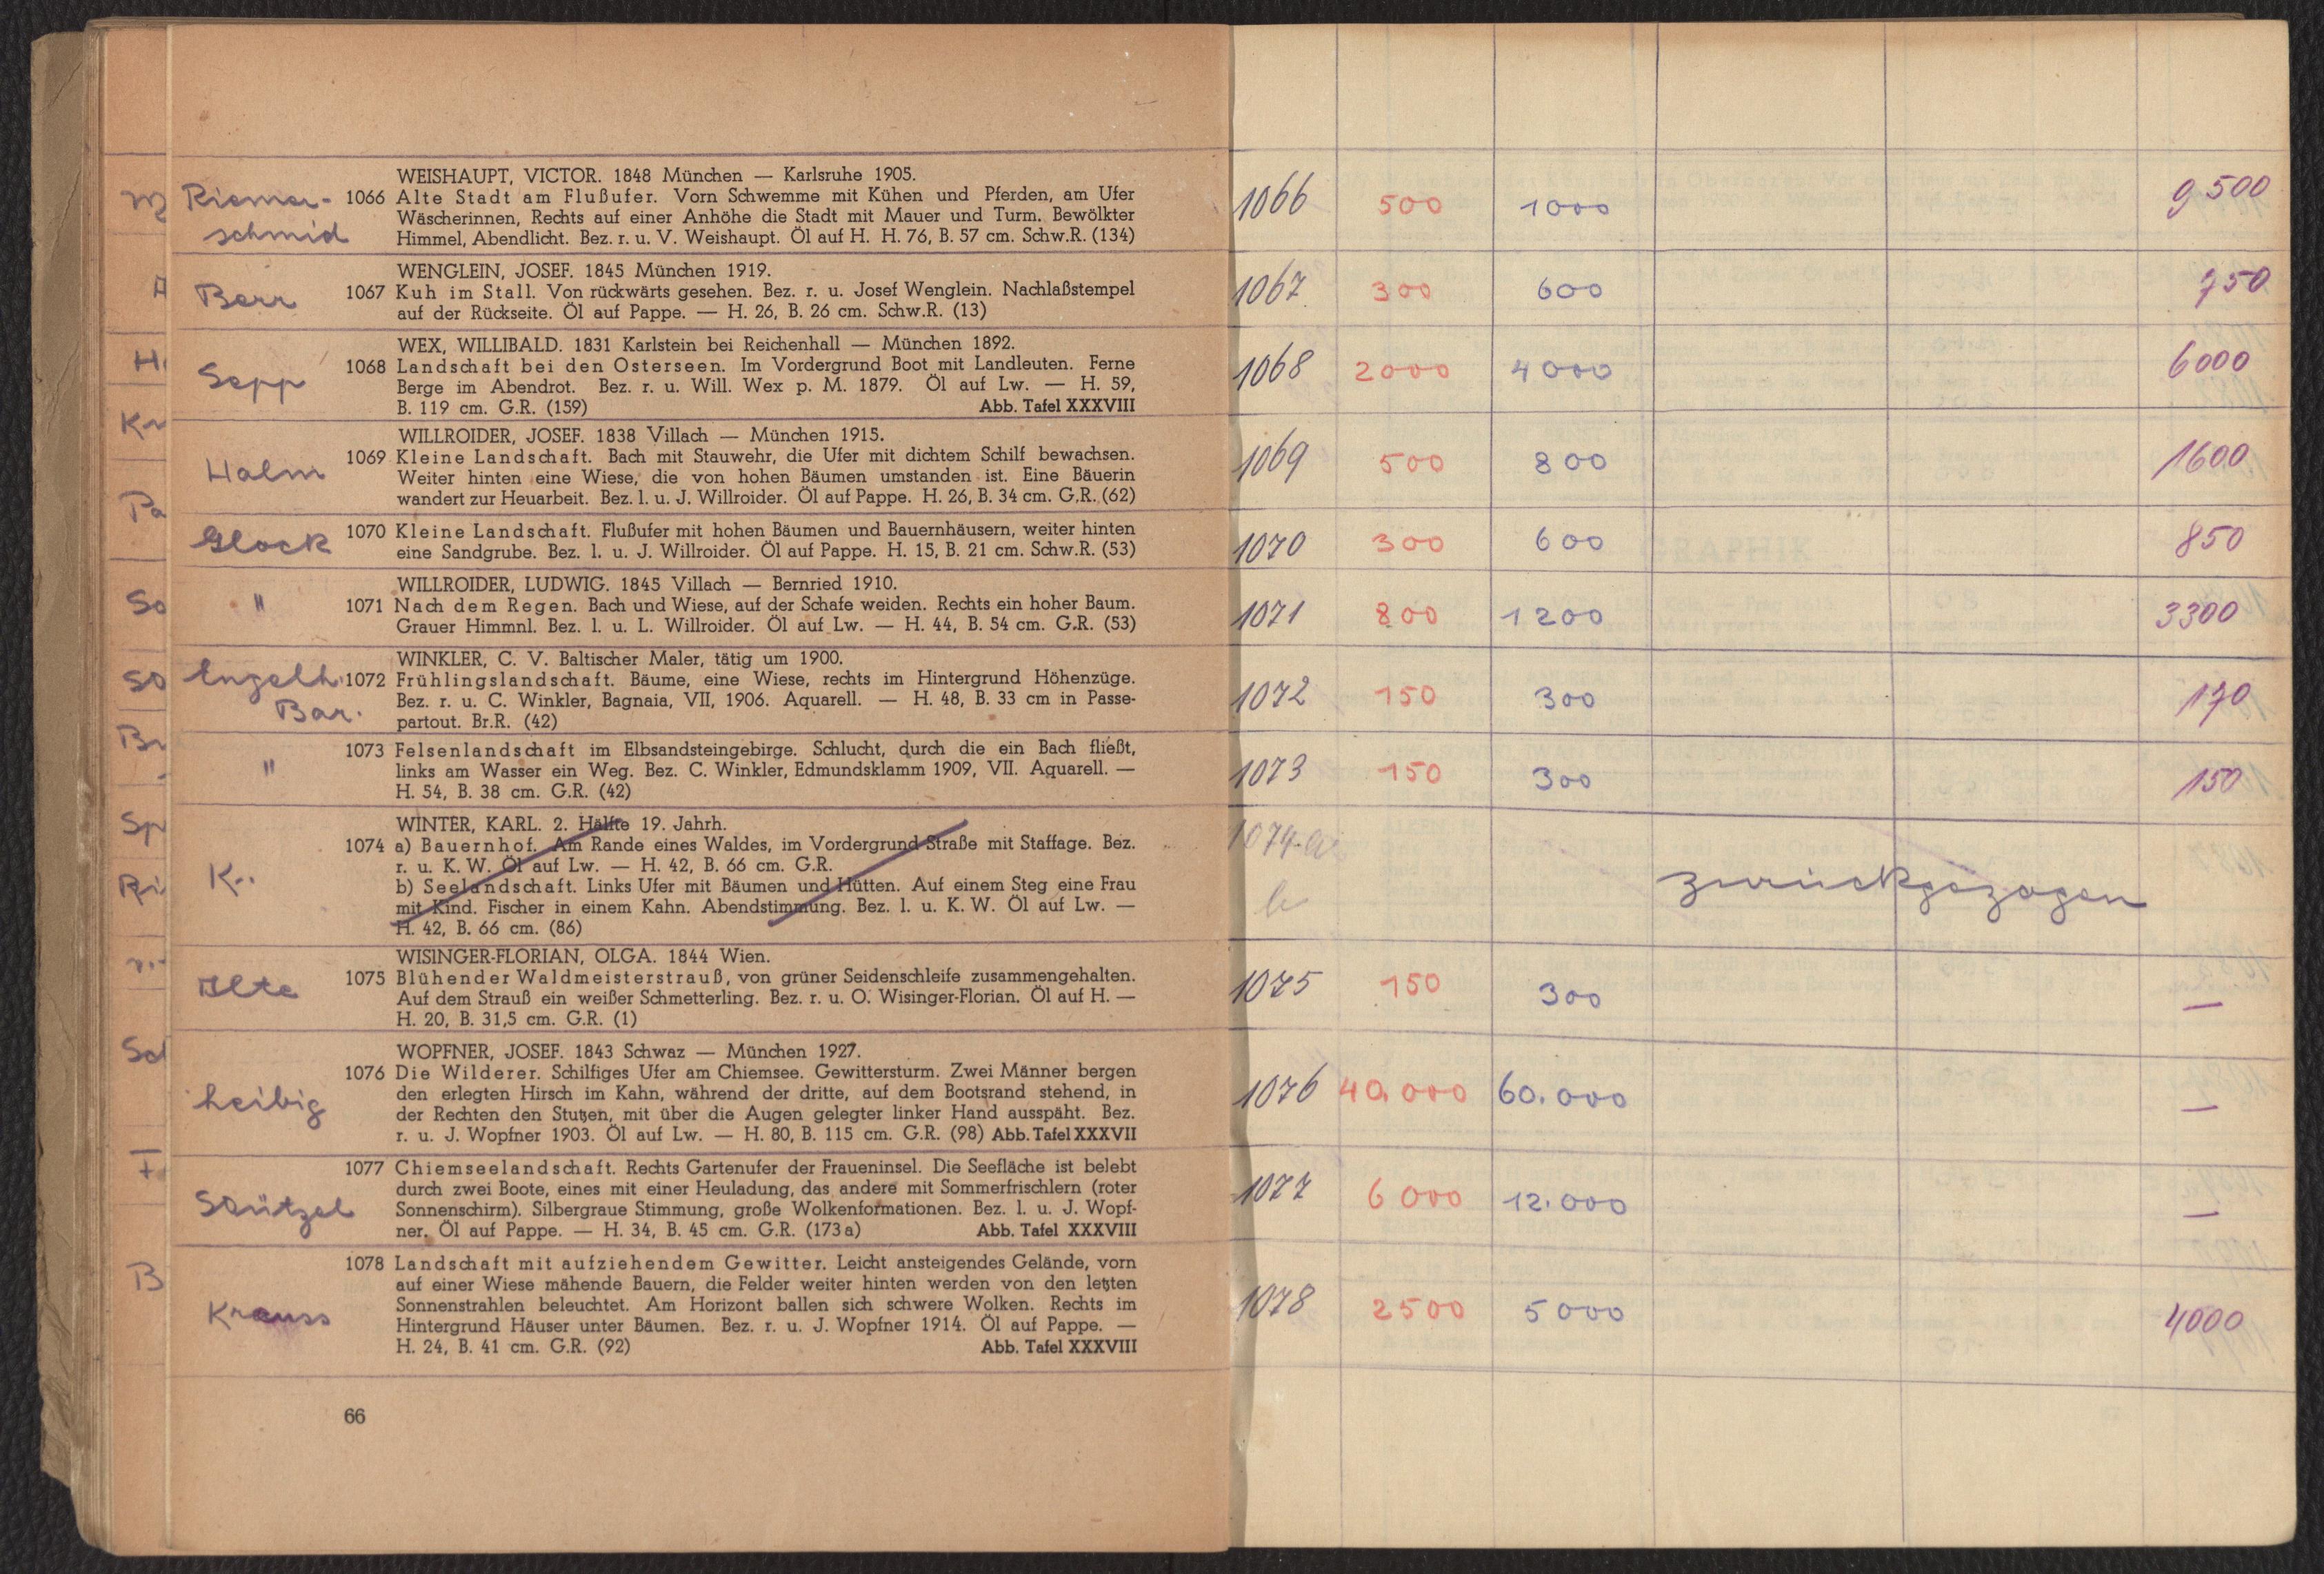 WEISHAUPT, VICTOR. 1848 München — Karlsruhe 1905.
Riemer-
schmid
1066 Alte Stadt am Flußufer. Vorn Schwemme mit Kühen und Pferden, am Ufer
Wäscherinnen, Rechts auf einer Anhöhe die Stadt mit Mauer und Turm. Bewölkter
Himmel, Abendlicht. Bez. r. u. V. Weishaupt. Öl auf H. H. 76, B. 57 cm. Schw.R. (134)
WENGLEIN, JOSEF. 1845 München 1919.
Berr
1067 Kuh im Stall. Von rückwärts gesehen. Bez. r. u. Josef Wenglein. Nachlaßstempel
auf der Rückseite. Öl auf Pappe. — H. 26, B. 26 cm. Schw.R. (13)
WEX, WILLIBALD. 1831 Karlstein bei Reichenhall — München 1892.
Sepp
1068 Landschaft bei den Osterseen. Im Vordergrund Boot mit Landleuten. Ferne
Berge im Abendrot. Bez. r. u. Will. Wex p. M. 1879. Öl auf Lw. — H. 59,
B. 119 cm. G.R. (159) Abb. Tafel XXXVIII
WILLROIDER, JOSEF. 1838 Villach — München 1915.
Halm
1069 Kleine Landschaft. Bach mit Stauwehr, die Ufer mit dichtem Schilf bewachsen.
Weiter hinten eine Wiese, die von hohen Bäumen umstanden ist. Eine Bäuerin
wandert zur Heuarbeit. Bez. l. u. J. Willroider. Öl auf Pappe. H. 26, B. 34 cm. G.R. (62)
Glock
1070 Kleine Landschaft. Flußufer mit hohen Bäumen und Bauernhäusern, weiter hinten
eine Sandgrube. Bez. l. u. J. Willroider. Öl auf Pappe. H. 15, B. 21 cm. Schw.R. (53)
WILLROIDER, LUDWIG. 1845 Villach — Bernried 1910.
"
1071 Nach dem Regen. Bach und Wiese, auf der Schafe weiden. Rechts ein hoher Baum.
Grauer Himmnl. Bez. l. u. L. Willroider. Öl auf Lw. — H. 44, B. 54 cm. G.R. (53)
WINKLER, C. V. Baltischer Maler, tätig um 1900.
Engelh.
Bar.
1072 Frühlingslandschaft. Bäume, eine Wiese, rechts im Hintergrund Höhenzüge.
Bez. r. u. C. Winkler, Bagnaia, VII, 1906. Aquarell. — H. 48, B. 33 cm in Passe-
partout. Br.R. (42)
"
1073 Felsenlandschaft im Elbsandsteingebirge. Schlucht, durch die ein Bach fließt,
links am Wasser ein Weg. Bez. C. Winkler, Edmundsklamm 1909, VII. Aquarell. —
H. 54, B. 38 cm. G.R. (42)
WINTER, KARL. 2. Hälfte 19. Jahrh.
K..
1074 a) Bauernhof. Am Rande eines Waldes, im Vordergrund Straße mit Staffage. Bez.
r. u. K. W. Öl auf Lw. — H. 42, B. 66 cm. G.R.
b) Seelandschaft. Links Ufer mit Bäumen und Hütten. Auf einem Steg eine Frau
mit Kind. Fischer in einem Kahn. Abendstimmung. Bez. l. u. K. W. Öl auf Lw. —
H. 42, B. 66 cm. (86)
WISINGER-FLORIAN, OLGA. 1844 Wien.
Ilte
1075 Blühender Waldmeisterstrauß, von grüner Seidenschleife zusammengehalten.
Auf dem Strauß ein weißer Schmetterling. Bez. r. u. O. Wisinger-Florian. Öl auf H. —
H. 20, B. 31,5 cm. G.R. (1)
WOPFNER, JOSEF. 1843 Schwaz — München 1927.
Leibig
1076 Die Wilderer. Schilfiges Ufer am Chiemsee. Gewittersturm. Zwei Männer bergen
den erlegten Hirsch im Kahn, während der dritte, auf dem Bootsrand stehend, in
der Rechten den Stutzen, mit über die Augen gelegter linker Hand ausspäht. Bez.
r. u. J. Wopfner 1903. Öl auf Lw. — H. 80, B. 115 cm. G.R. (98) Abb. Tafel XXXVII
Stützel
1077 Chiemseelandschaft. Rechts Gartenufer der Fraueninsel. Die Seefläche ist belebt
durch zwei Boote, eines mit einer Heuladung, das andere mit Sommerfrischlern (roter
Sonnenschirm). Silbergraue Stimmung, große Wolkenformationen. Bez. l. u. J. Wopf-
ner. Öl auf Pappe. — H. 34, B. 45 cm. G.R. (173a) Abb. Tafel XXXVIII
Krauss
1078 Landschaft mit aufziehendem Gewitter. Leicht ansteigendes Gelände, vorn
auf einer Wiese mähende Bauern, die Felder weiter hinten werden von den letzten
Sonnenstrahlen beleuchtet. Am Horizont ballen sich schwere Wolken. Rechts im
Hintergrund Häuser unter Bäumen. Bez. r. u. J. Wopfner 1914. Öl auf Pappe. —
H. 24, B. 41 cm. G.R. (92) Abb. Tafel XXXVIII
66
1066 500 1000 9500
1067 300 600 750
1068 2000 4000 6000
1069 500 800 1600
1070 300 600 850
1071 800 1200 3300
1072 150 300 170
1073 150 300 150
1074 a
b zurückgezogen
1075 150 300 —
1076 40.000 60.000 —
1077 6000 12.000 —
1078 2500 5000 4000